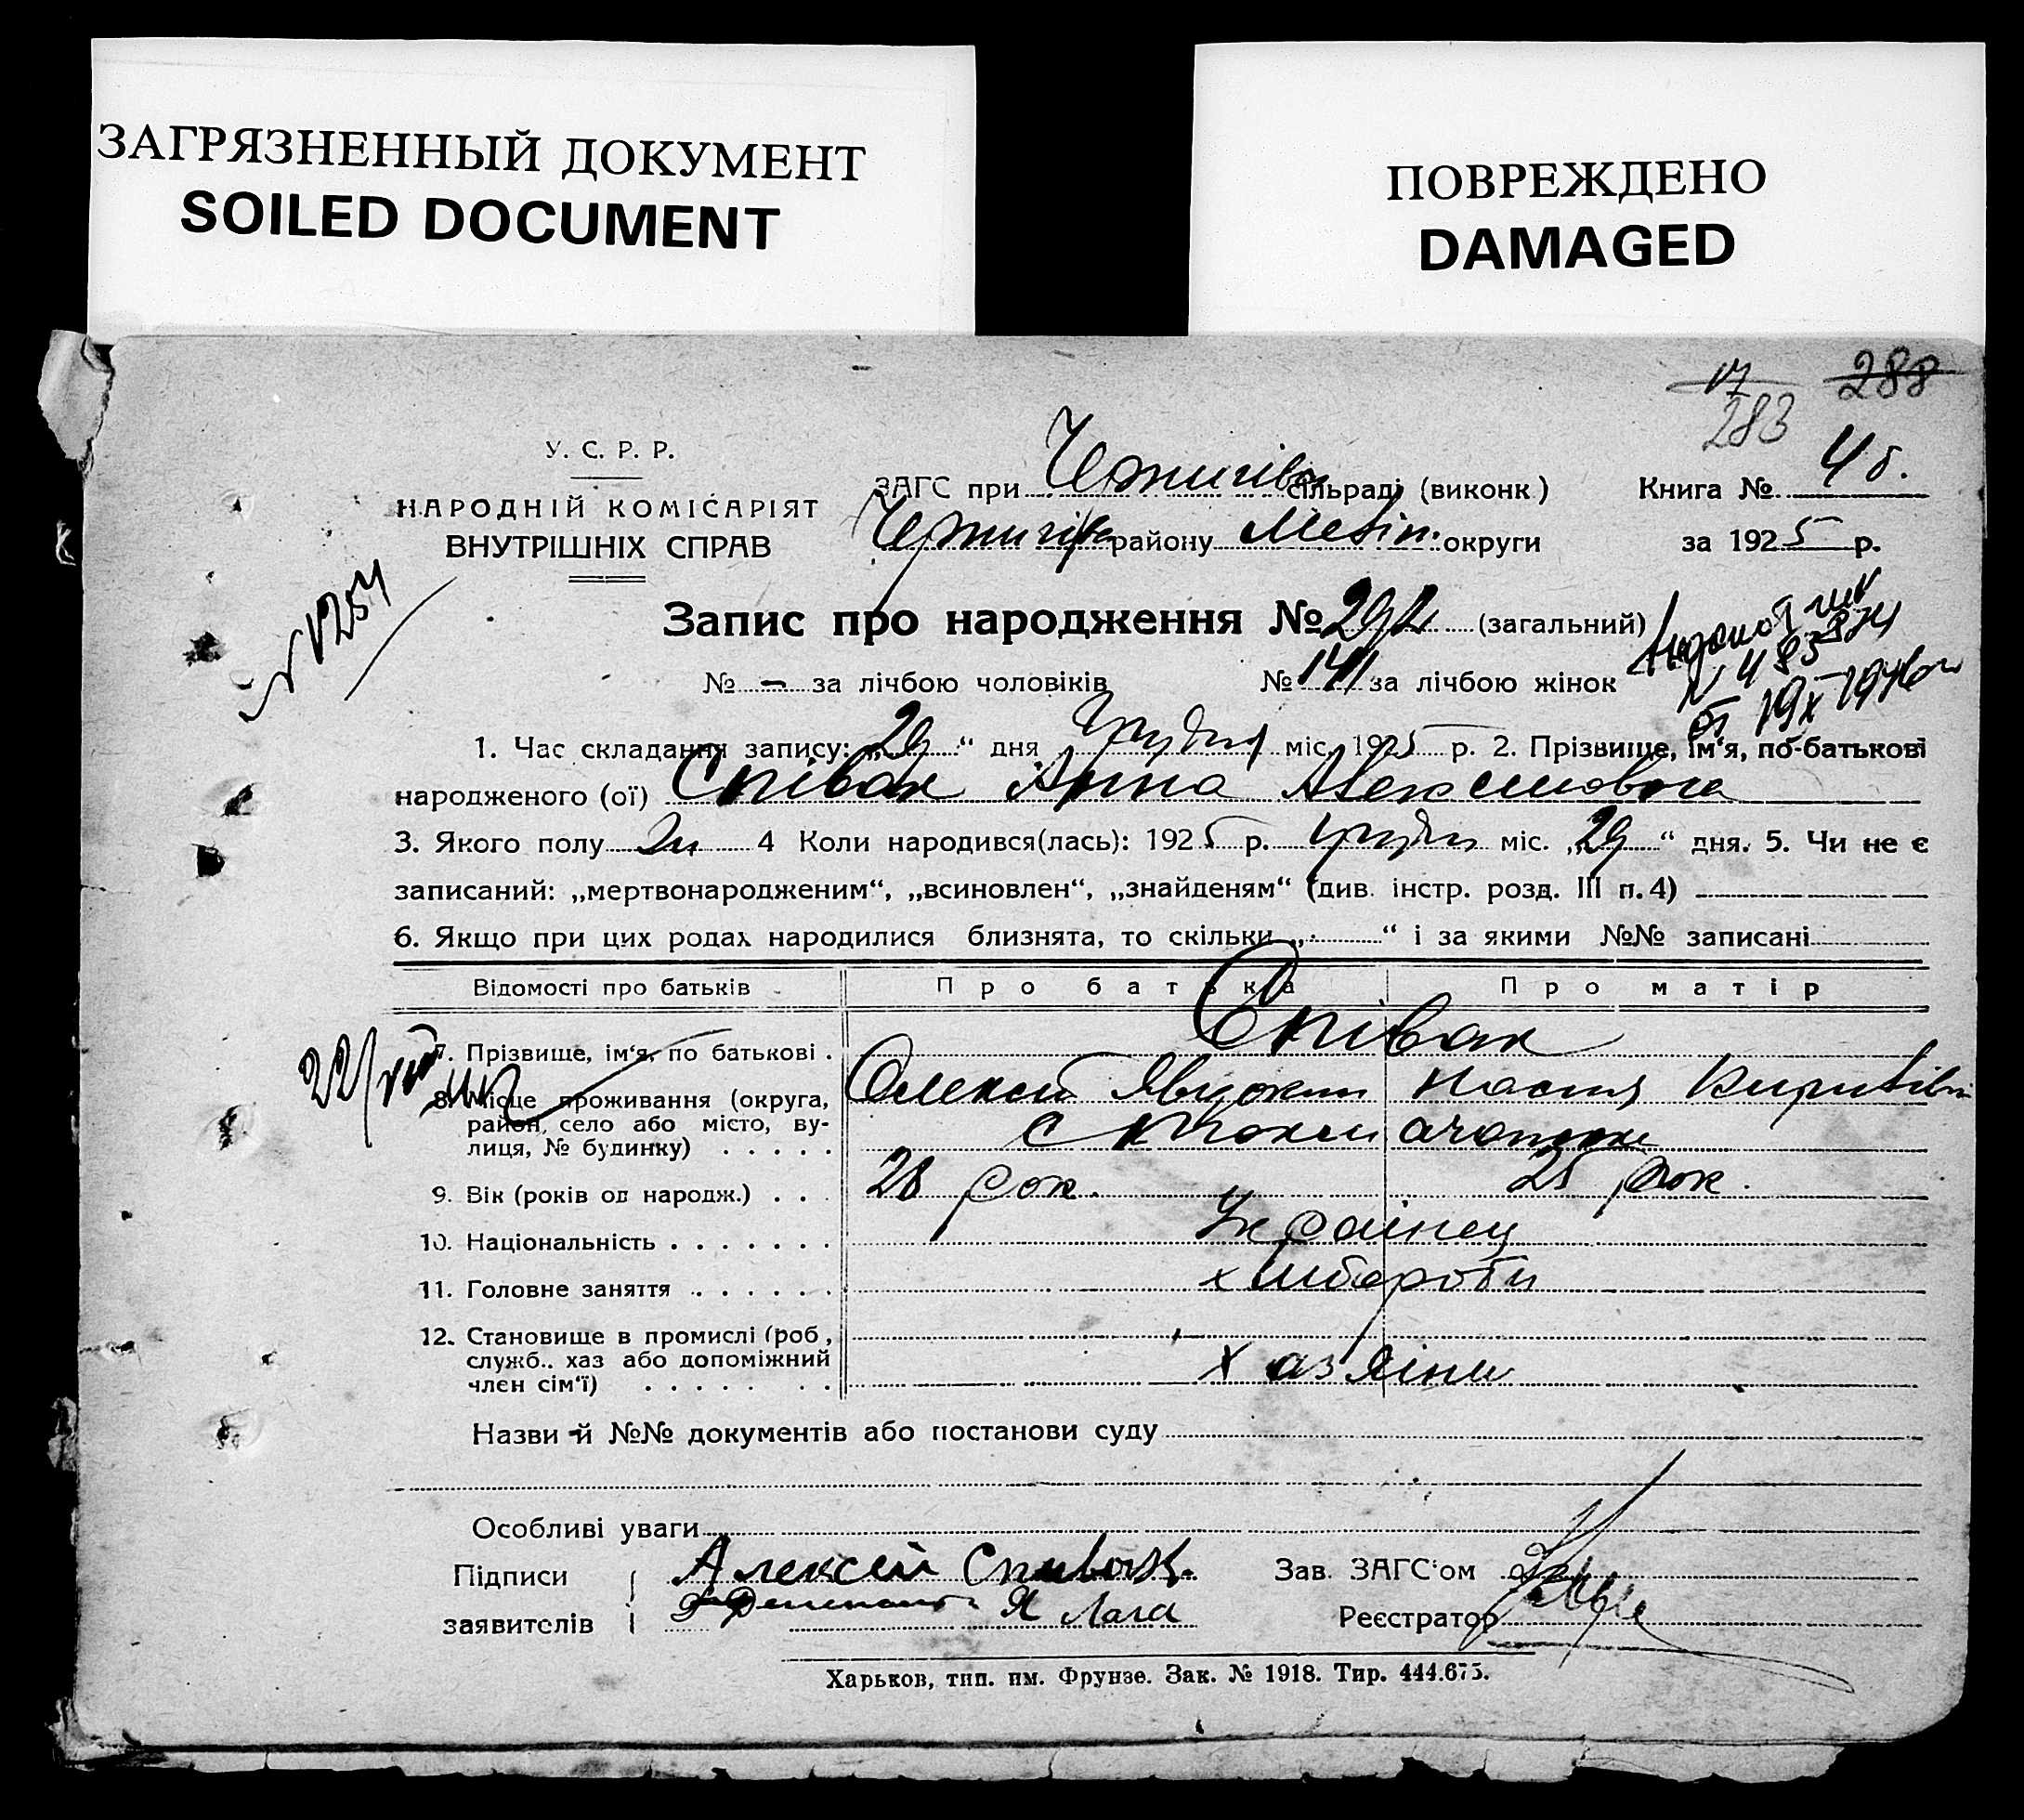 ЗАГРЯЗНЕННЫЙ ДОКУМЕНТ
SOILED DOCUMENT
ПОВРЕЖДЕНО
DAMAGED
17 288
283
У. С. Р. Р.
НАРОДНІЙ КОМІСАРІЯТ
ВНУТРІШНІХ СПРАВ
ЗАГС при Чернигівск сільраді (виконк.) Книга № 4 б.
Чернигівск району Меліт. округи за 1925 р.
N 1254
Запис про народження № 292 (загальний)
№ - за лічбою чоловіків № 141 за лічбою жінок
1. Час складання запису: „29“ дня Грудня міс. 1925 р. 2. Прізвище, ім‘я, по-батькові
народженого (ої) Співак Анна Алексеивона
3. Якого полу Жи 4 Коли народився(лась): 1925 р. грудня міс. „29“ дня. 5. Чи не є
записаний: „мертвонародженим“, „всиновлен“, „знайденям“ (див. інстр. розд. III п. 4)
6. Якщо при цих родах народилися близнята, то скільки „ “ і за якими №№ записані
Відомості про батьків Про батька Про матір
22/VIII
7. Прізвище, ім‘я, по батькові . Співак
8. Місце проживання (округа, Олексій Явдоким Настя Кирилівна
район, село або місто, ву-
лиця, № будинку) . . . . .
9. Вік (років од народж.) . . . 28 рок. 25 рок.
10. Національність . . . . . . . Украінец
11. Головне заняття . . . . . . хлібороби
12. Становище в промислі (роб.,
служб.. хаз або допоміжний Хазяіни
член сім‘ї) . . . . . . .
Назви й №№ документів або постанови суду
Особливі уваги
Підписи Алексей Спивак. Зав. ЗАГС‘ом
заявителів Я Лага Реєстратор
Харьков, тип. им. Фрунзе. Зак. № 1918. Тир. 444.675.